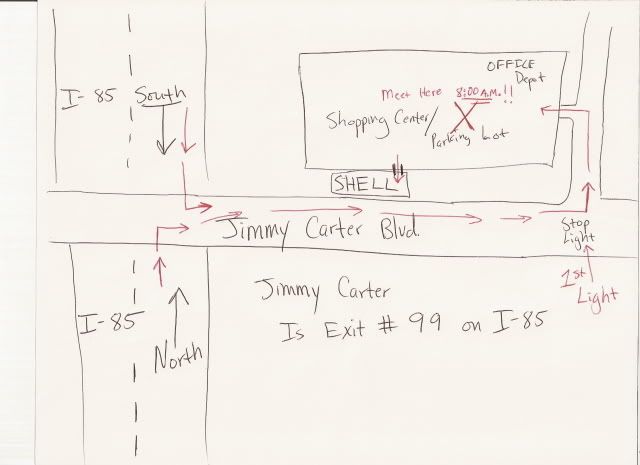 OFFICE
Depot
I-85 South
Meet Here 8:00 A.M.!!
Shopping Center/
X
Parking Lot
SHELL
Jimmy Carter Blvd.
Stop
Light
1st
Light
Jimmy Carter
Is Exit # 99 on I-85
I-85
North